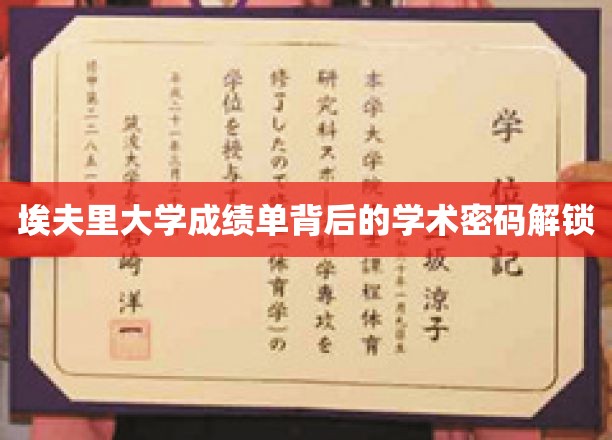 埃夫里大学成绩单背后的学术密码解锁
学位記
坂涼子
本学大学院
課程体育
研究科スポー
科学専攻を
修了したので修
(体育学)の
学位を授与す
平成二十一年三月二
筑波大学長
岩崎洋一
修甲第二二八五一号